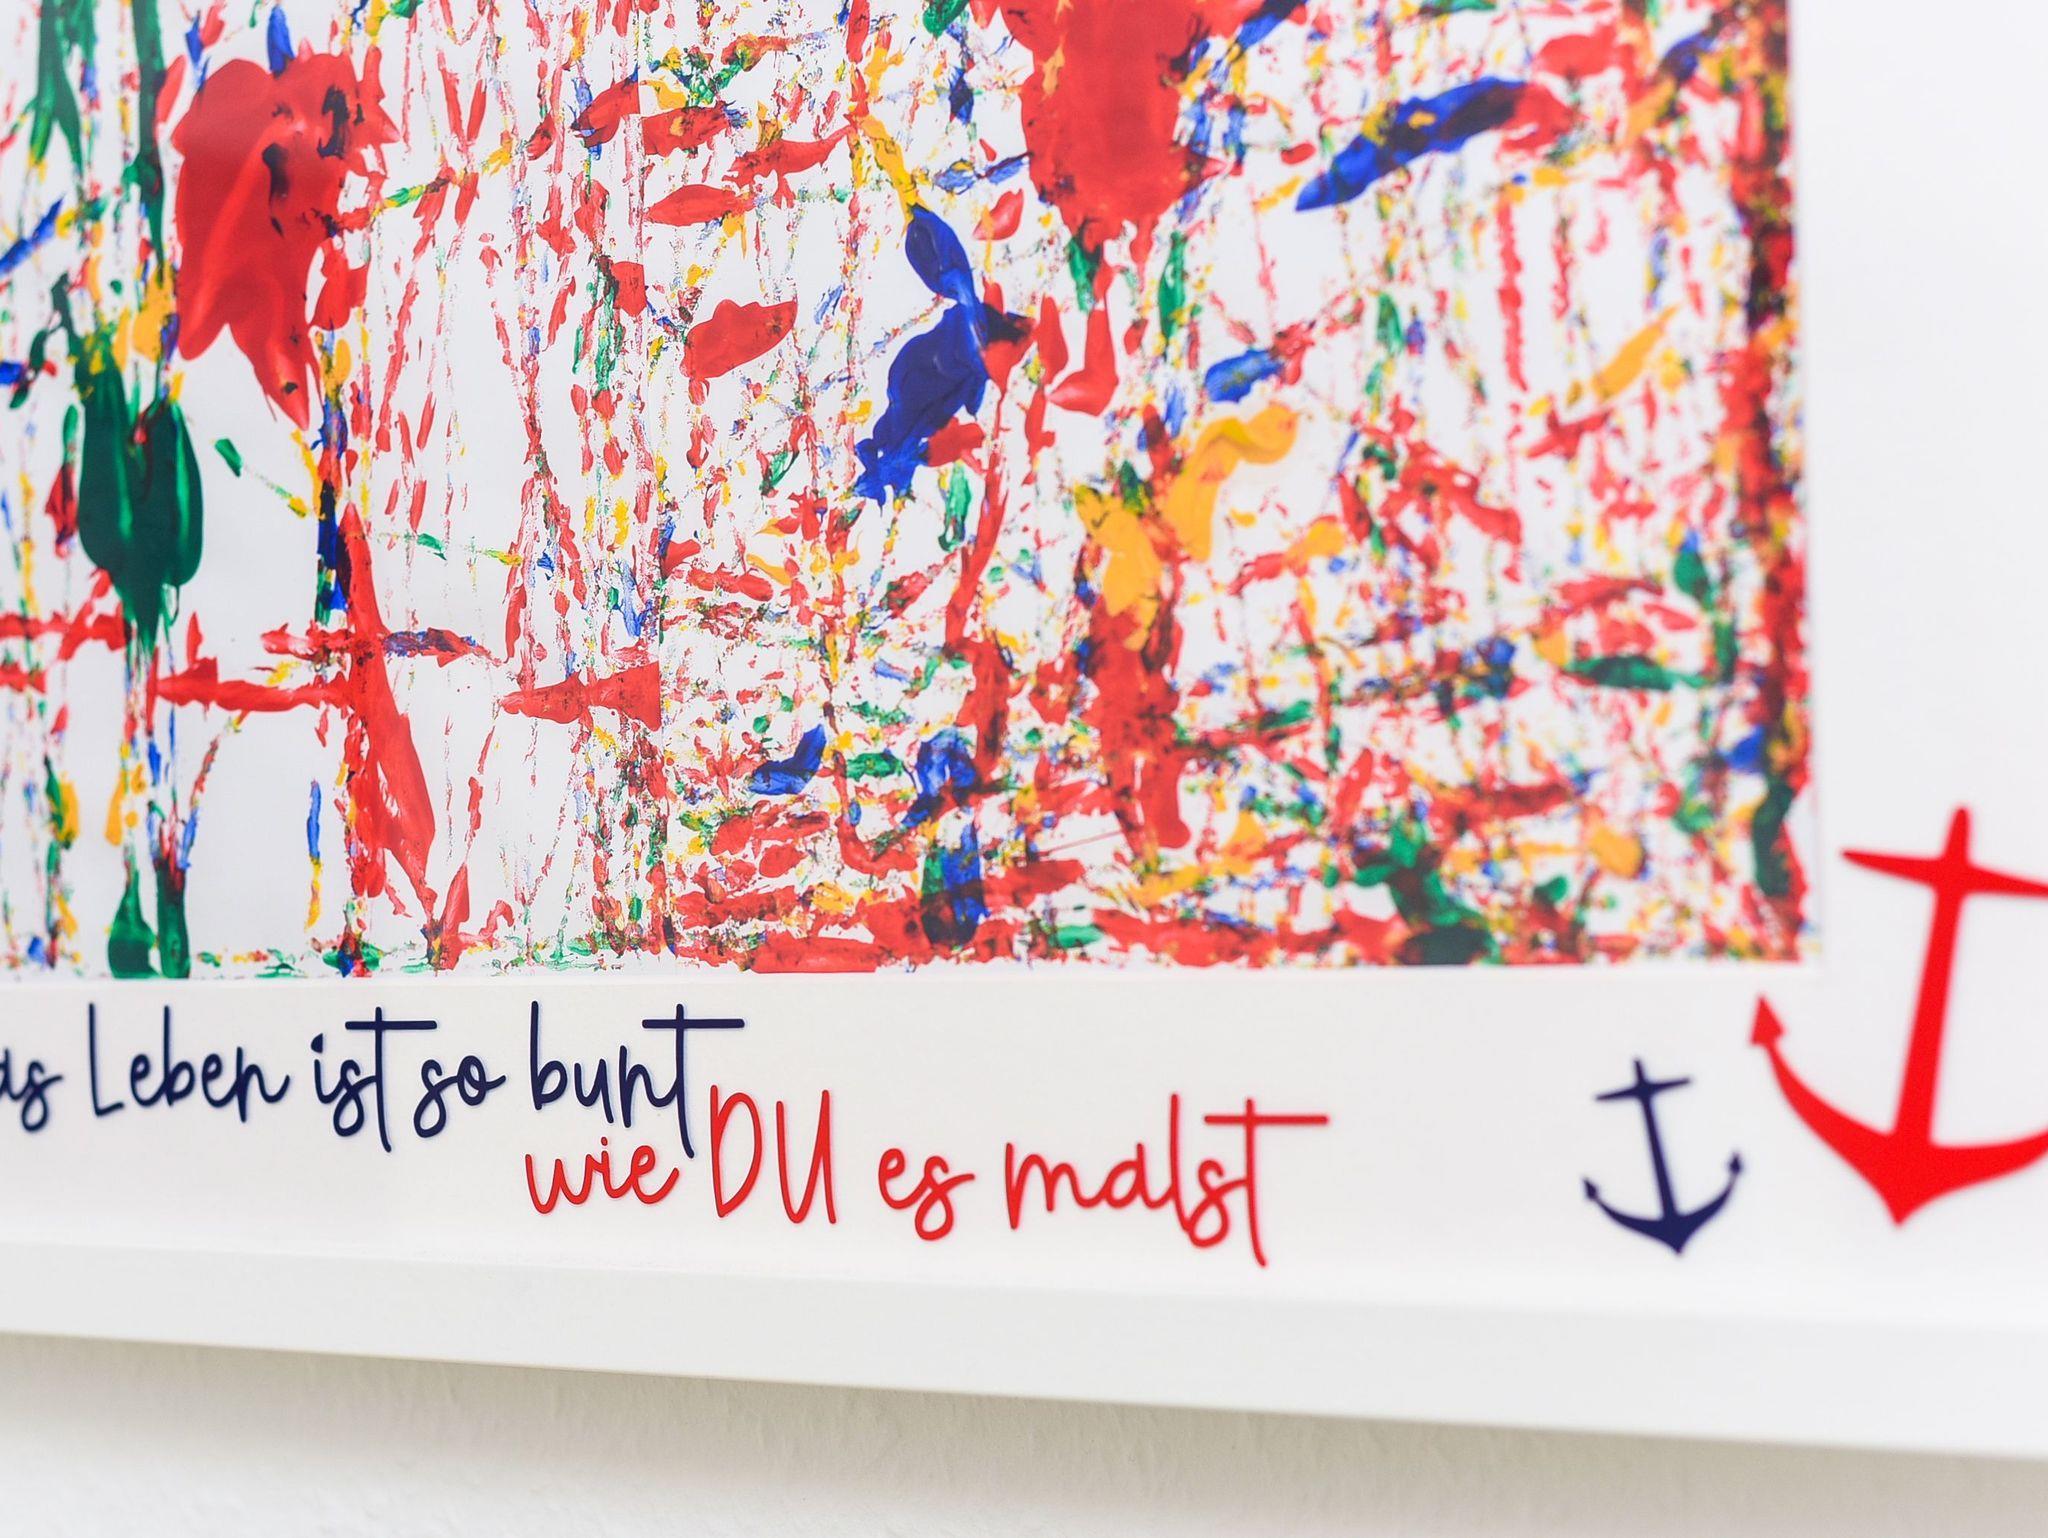 as Leben ist so bunt
wie DU es malst